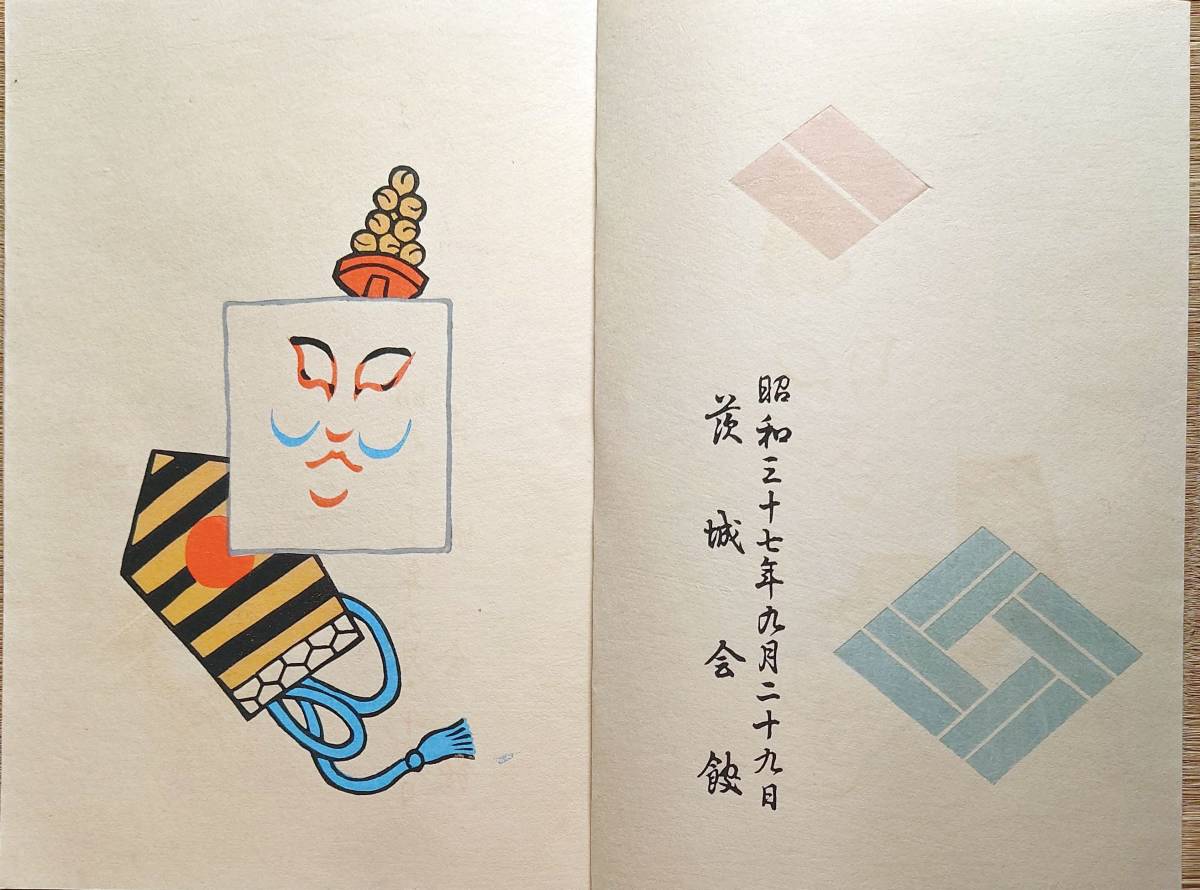 昭和三十七年九月二十九日
茨城会